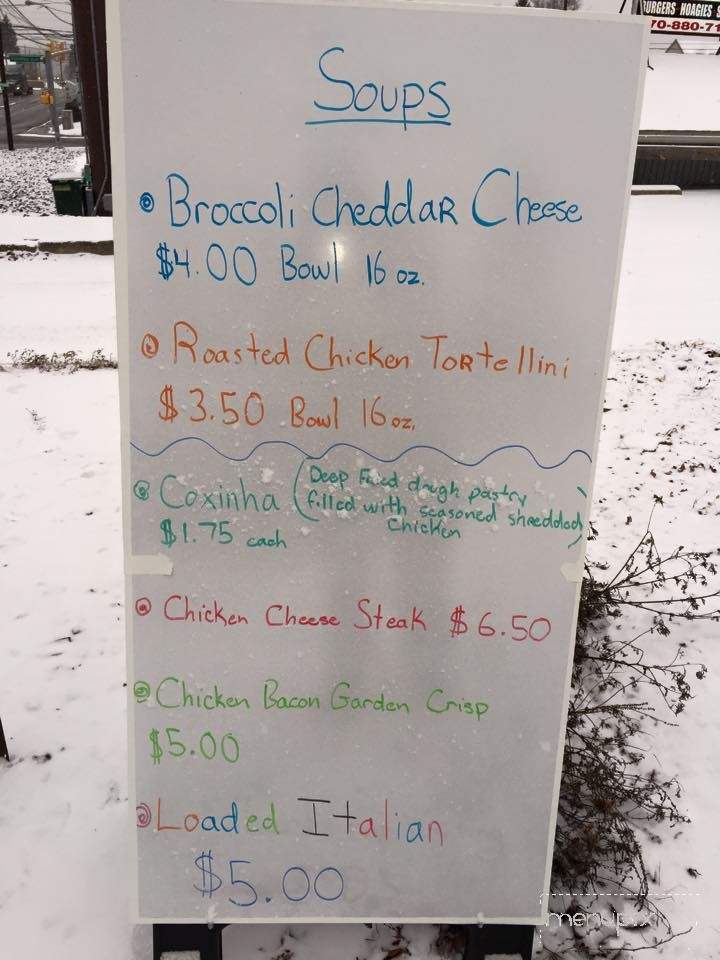 URGERS HOAGIES
70-880-71
Soups
Broccoli Cheddar Cheese
$4.00 Bowl 16 oz.
Roasted Chicken Tortellini
$3.50 Bowl 16 oz.
Coxinha (Deep Fried dough pastry
filled with seasoned shredded
Chicken)
$1.75 each
Chicken Cheese Steak $6.50
Chicken Bacon Garden Crisp
$5.00
Loaded Italian
$5.00
menupix